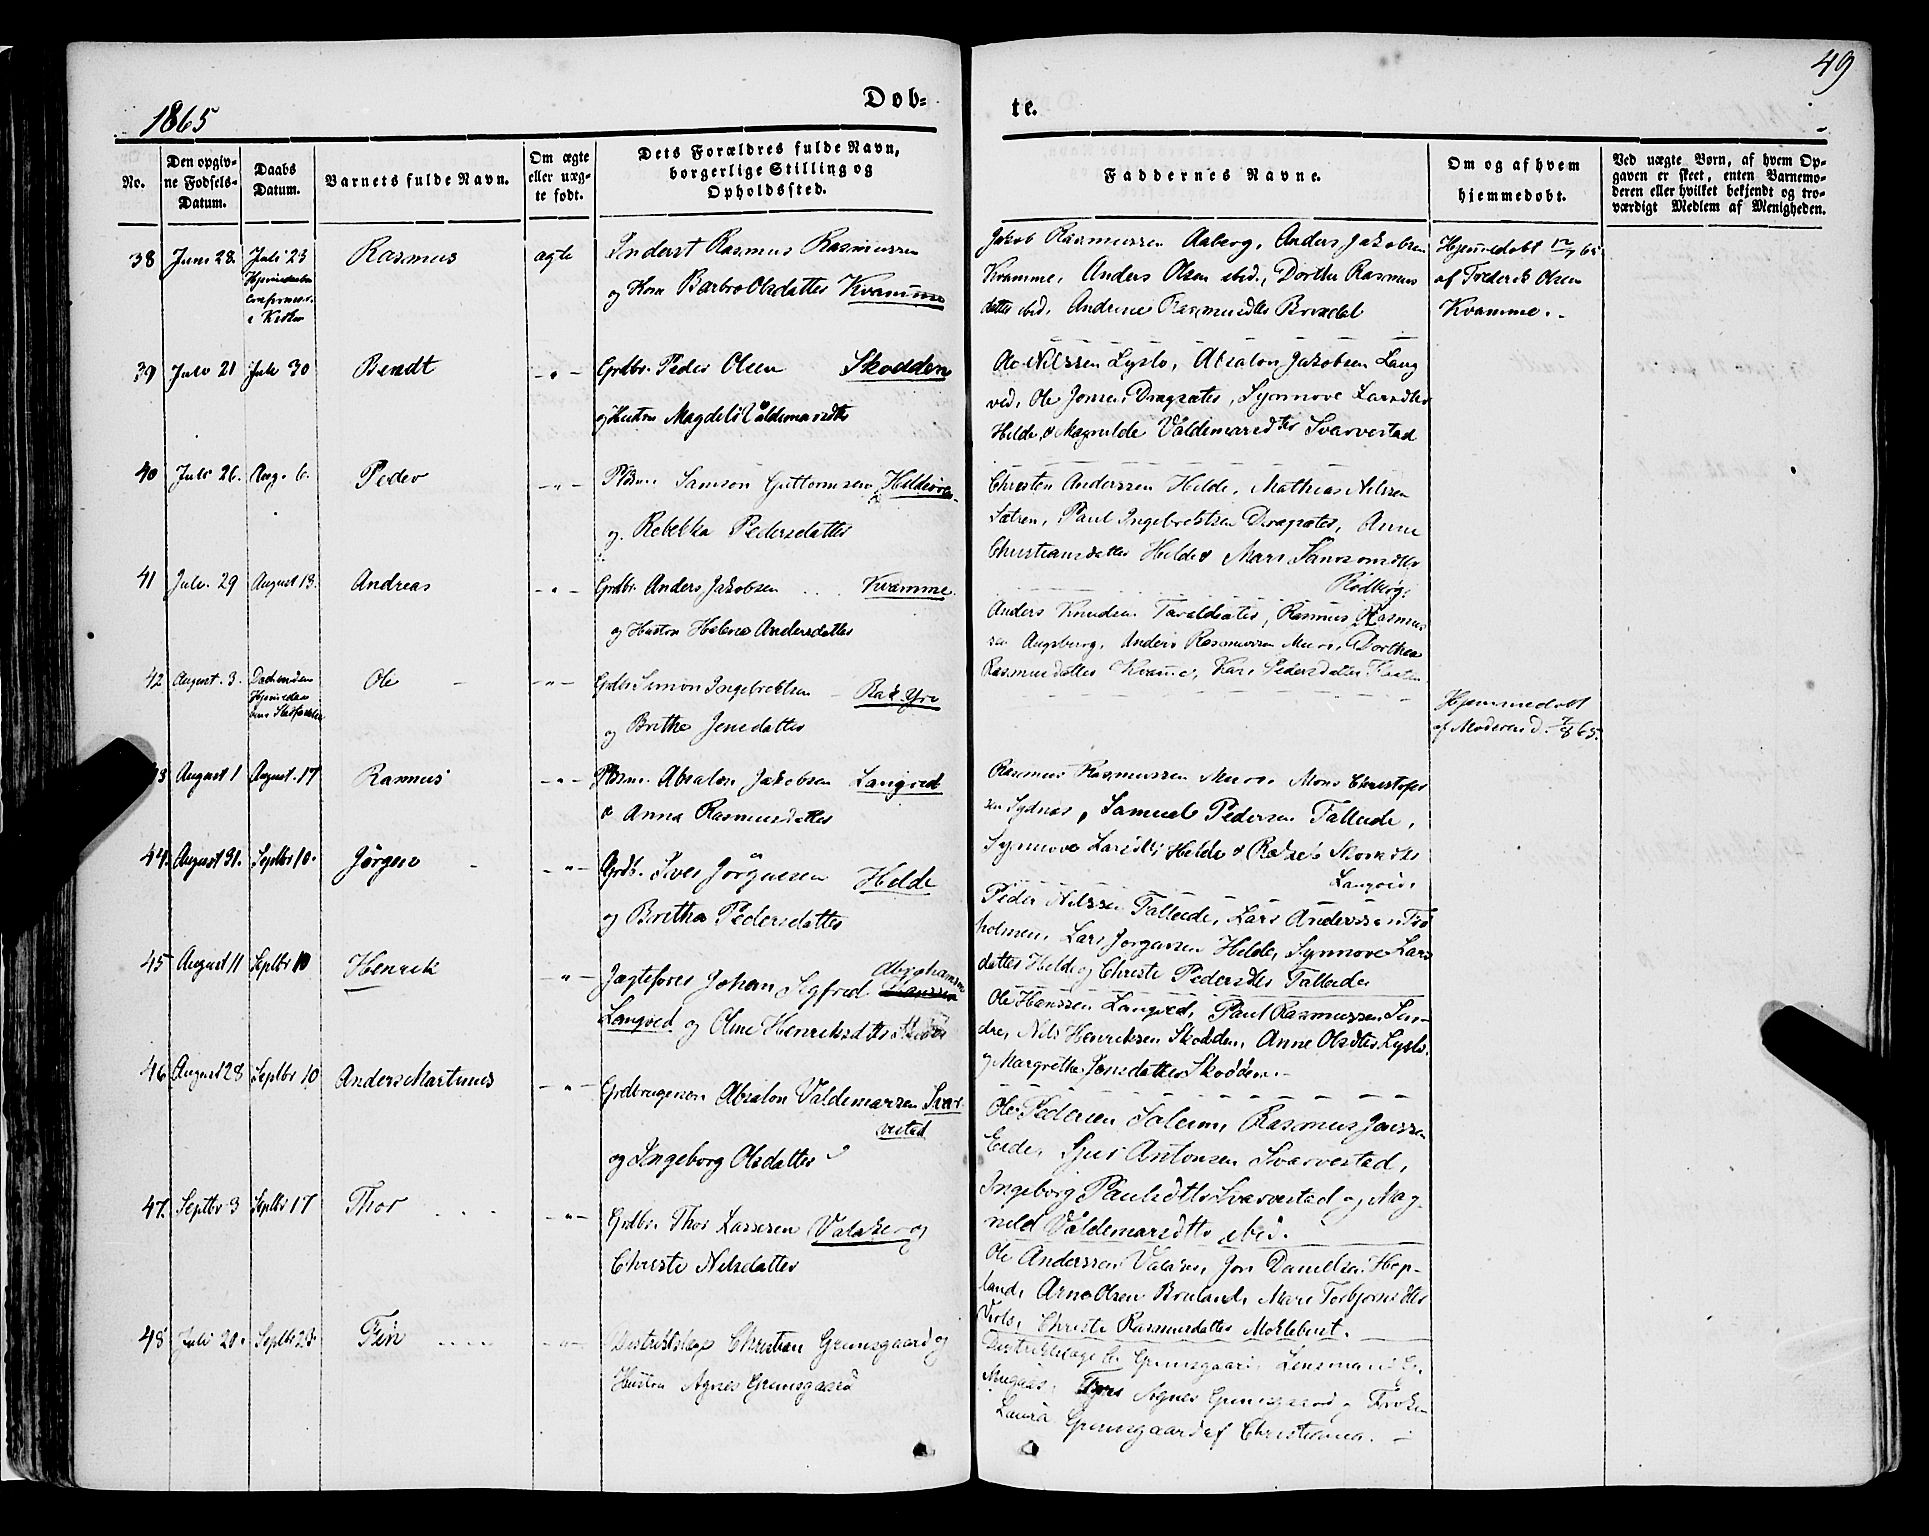 49
1865
Døb-
te.
No.
Den opgiv-
ne Fødsels-
Datum.
Daabs
Datum.
Barnets fulde Navn.
Om ægte
eller uæg-
te født.
Dets Forældres fulde Navn,
borgerlige Stilling og
Opholdssted.
Faddernes Navne.
Om og af hvem
hjemmedøbt.
Ved uægte Børn, af hvem Op-
gaven er skeet, enten Barnemo-
deren eller hvilket bekjendt og tro-
værdigt Medlem af Menigheden.
38 Juni 28. Juli 23 Rasmus ægte Inderst Rasmus Rasmussen
og Kone Barbro Olsdatter Kvamme
Jakob Rasmussen Aaberg, Anders Jakobsen
Kvamme, Anders Olsen ibid., Dorthe Rasmus
datter ibid. Andrine Rasmusdtr
Hjemmedøbt 12/7 65
af Frederik Olsen
Kvamme.
39 Juli 21 Juli 30 Bendt - " - Grdbr. Peder Olsen Skodden
og Hustru Magdeli Valdemarsdtr
Nilssen Lyslo, Absalon Jakobsen Lang
ved, Ole Jonsen Dragsæter, Synnøve Larsdtr
Hilde, & Magnilde Valdemarsdtr Svarvestad
40 Juli 26. Aug. 6. Peder - " - Plsm. Samson Guttormsen
og Rebekka Pedersdatter
Christen Anderssen Helde, Mathias Nilssen
Sætren, Paul Ingebretsen Dragsæter, Anne
Christiansdatter Helde & Mari Samsonsdtr
Rødberg.
41 Juli 29 August 13. Andreas - " - Grdbr. Anders Jakobsen Kvamme.
og Hustru Helene Andersdatter
Anders Knudsen Taraldsæter, Rasmus Rasmus
sen Augsburg, Anders Rasmussen Muri, Dorthea
Rasmusdatter Kvamme, Kari Pedersdatter
42 August 3. Ole - " - Grdbr Simon Ingebretsen Bak. Yre
og Brithe Jensdatter
Hjemmedøbt
af Moderen d. 7/8 65.
43 August 1 August 17 Rasmus - " - Plsm. Absalon Jakobsen Langved
& Anna Rasmusdatter
Rasmus Rasmussen Muri, Mons Christofer
sen Sydnæs, Samuel Pedersen Talleide,
Synnøve Larsdtr Helde &
Langved.
44. August 31. Septbr 10. Jørgen - " - Grdb. Iver Jørgensen Helde
og Brithe Pedersdatter
Peder Nilssen Talleide, Lars Anderssen
holmen, Lars Jørgensen Helde, Synnøve Lars
datter Helde og Christi Pedersdtr Talleide
45 August 11 Septbr 10 Henrik - " - Jagtefører Johan Sigfred Abrahamsen
Langved og Oline Henriksdatter
Ole Hanssen Langved, Paul Rasmussen Sun-
dre, Nils Henriksen Skodden, Anne Olsdtr Lyslo
og Margrethe Jonsdatter Skodden.
46 August 28 Septbr 10 Anders Martinus - " - Grdbrugeren Absalon Valdemarsen Svar-
vestad
og Ingeborg Olsdatter
Ole Pedersen Solem, Rasmus Janssen
Eide, Sjur Antonsen Svarvestad,
Ingeborg Paulsdtr Svarvestad og Mag-
nild Valdemarsdtr ibid.
47. Septbr 3 Septbr 17 Thor - " - Grdbr. Thor Lassesen Valaker og
Christi Nilsdatter
Ole Anderssen Valaker, Jon Danielsen Hop-
land, Arne Olsen Bruland, Mari Torbjørnsdtr
Christi Rasmusdatter Moklebust.
48 Juli 20. Septbr 23. Fin - " - Distriktslæge Christian Grimsgaard og
Hustru Agnes Grimsgaard
Distriktslæge Grimsgaard, Lensmand G.
Agnes Grimsgaard og Frøken
Laura Grimsgaard af Christiania.